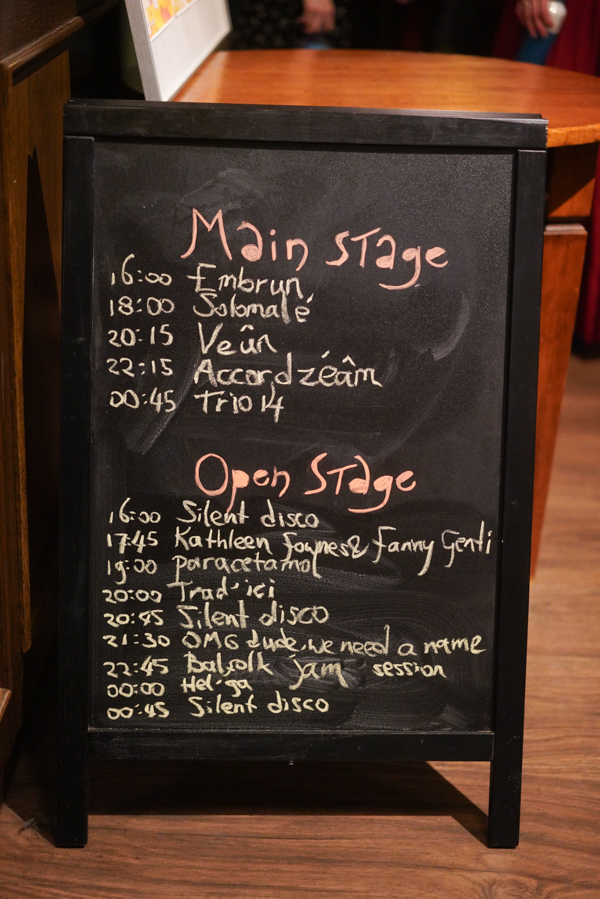 Main Stage
16:00 Embrun
18:00 Solomalé
20:15 Veûn
22:15 Accordzéâm
00:45 Trio 14
Open Stage
16:00 Silent disco
17:45 Kathleen Fownes & Fanny Genti
19:00 paracetamol
20:00 Trad'ici
20:45 Silent disco
21:30 OMG dude, we need a name
22:45 Balfolk jam session
00:00 Hel·ga
00:45 Silent disco